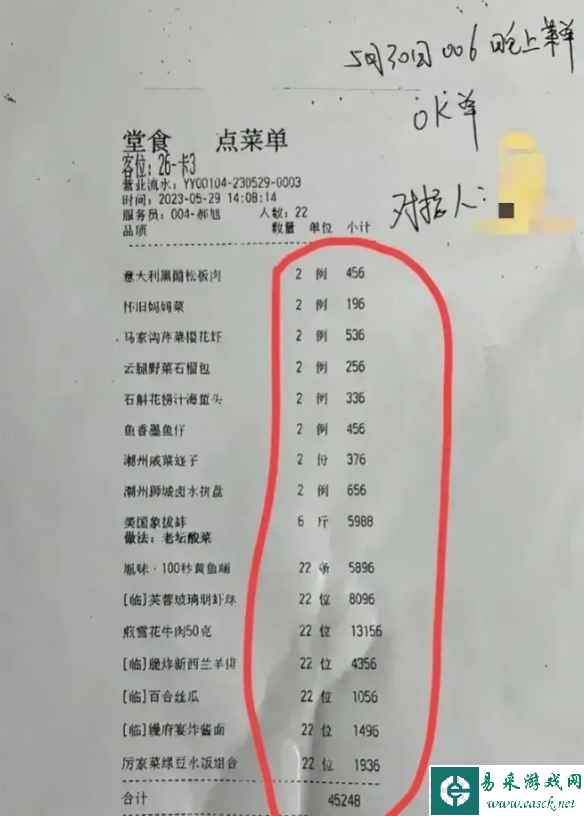 5月30日006 晚上菜单
OK单
对接人：
堂食 点菜单
客位：26-卡3
营业流水：YY00104-230529-0003
时间：2023-05-29 14:08:14
服务员：004-郝旭 人数：22
品项 数量 单位 小计
意大利黑醋松板肉 2 例 456
怀旧妈妈菜 2 例 196
马家沟芹菜樱花虾 2 例 536
云腿野菜石榴包 2 例 256
石斛花捞汁海蜇头 2 例 336
鱼香墨鱼仔 2 例 456
潮州咸菜蛏子 2 份 376
潮州狮城卤水拼盘 2 例 656
美国象拔蚌 6 斤 5988
做法：老坛酸菜
胤味·100秒黄鱼脯 22 条 5896
[临]芙蓉玻璃明虾球 22 位 8096
煎雪花牛肉50克 22 位 13156
[临]脆炸新西兰羊排 22 位 4356
[临]百合丝瓜 22 位 1056
[临]鳗府宴炸酱面 22 位 1496
厉家菜绿豆水饭组合 22 位 1936
合计 45248
易采游戏网
www.easck.net